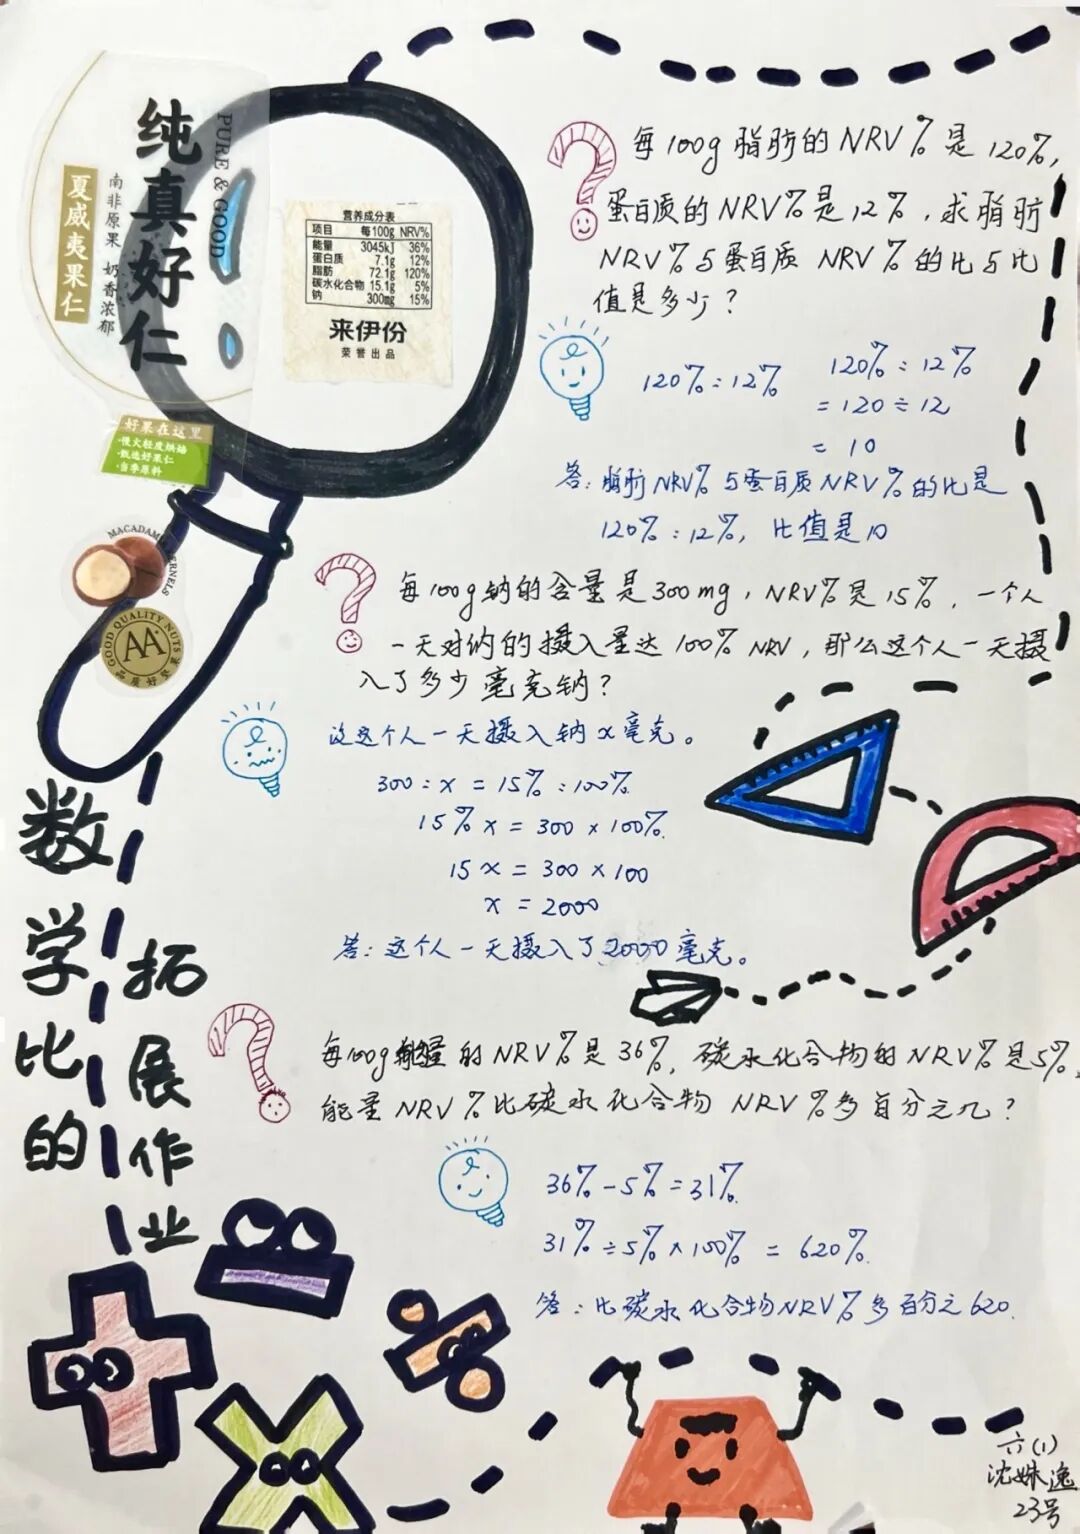 纯真好仁
PURE & GOOD
夏威夷果仁
南非原果 奶香浓郁
营养成分表
项目 每100g NRV%
能量 3045kJ 36%
蛋白质 7.1g 12%
脂肪 72.1g 120%
碳水化合物 15.1g 5%
钠 300mg 15%
来伊份
荣誉出品
好果在这里
·慢火轻度烘焙
·甄选好果仁
·当季原料
GOOD QUALITY NUTS
AA
品质好坚果
每100g脂肪的NRV%是120%,
蛋白质的NRV%是12%,求脂肪
NRV%与蛋白质 NRV%的比与比
值是多少?
120%:12%
120%:12%
=120÷12
=10
答:脂肪NRV%与蛋白质NRV%的比是
120%:12%,比值是10
每100g钠的含量是300mg,NRV%是15%,一个人
一天对钠的摄入量达100% NRV,那么这个人一天摄
入了多少毫克钠?
设这个人一天摄入钠x毫克。
300:x=15%:100%
15%x=300×100%
15x=300×100
x=2000
答:这个人一天摄入了2000毫克。
每100g能量的NRV%是36%,碳水化合物的NRV%是5%,
能量NRV%比碳水化合物 NRV%多百分之几?
36%-5%=31%
31%÷5%×100%=620%
答:比碳水化合物NRV%多百分之620.
数学比的
拓展作业
六(1)
沈姝逸
23号